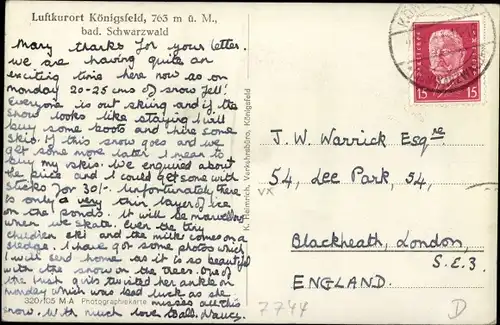 Luftkurort Königsfeld, 763 m ü. M.,
bad. Schwarzwald
Many thanks for your letter.
we are having quite an
exciting time here now as on
monday 20-25 cms of snow fell!
Everyone is out skiing and if the
snow looks like staying I will
buy some boots and hire some
skis. If this snow goes and we
get some more later I mean to
buy my skis. we enquired about
the price and I could get some with
sticks for 30/-. Unfortunately there
is only a very thin layer of ice
on the ponds. It will be marvellous
when we skate. Even the tiny
children ski and the milk comes on a
sledge. I have got some photos which
I will send home as it is so beautiful
with the snow on the trees. One of
the girls twisted her ankle on
monday which was bad luck as she
misses all this
snow. With much love to all. Nancy.
320/105 M A Photographiekarte
K. Heimrich, Verkehrsbüro, Königsfeld
15 15
J. W. Warrick Esqre
54, Lee Park, 54,
VX
Blackheath, London,
S.E.3.
ENGLAND.
7744
D